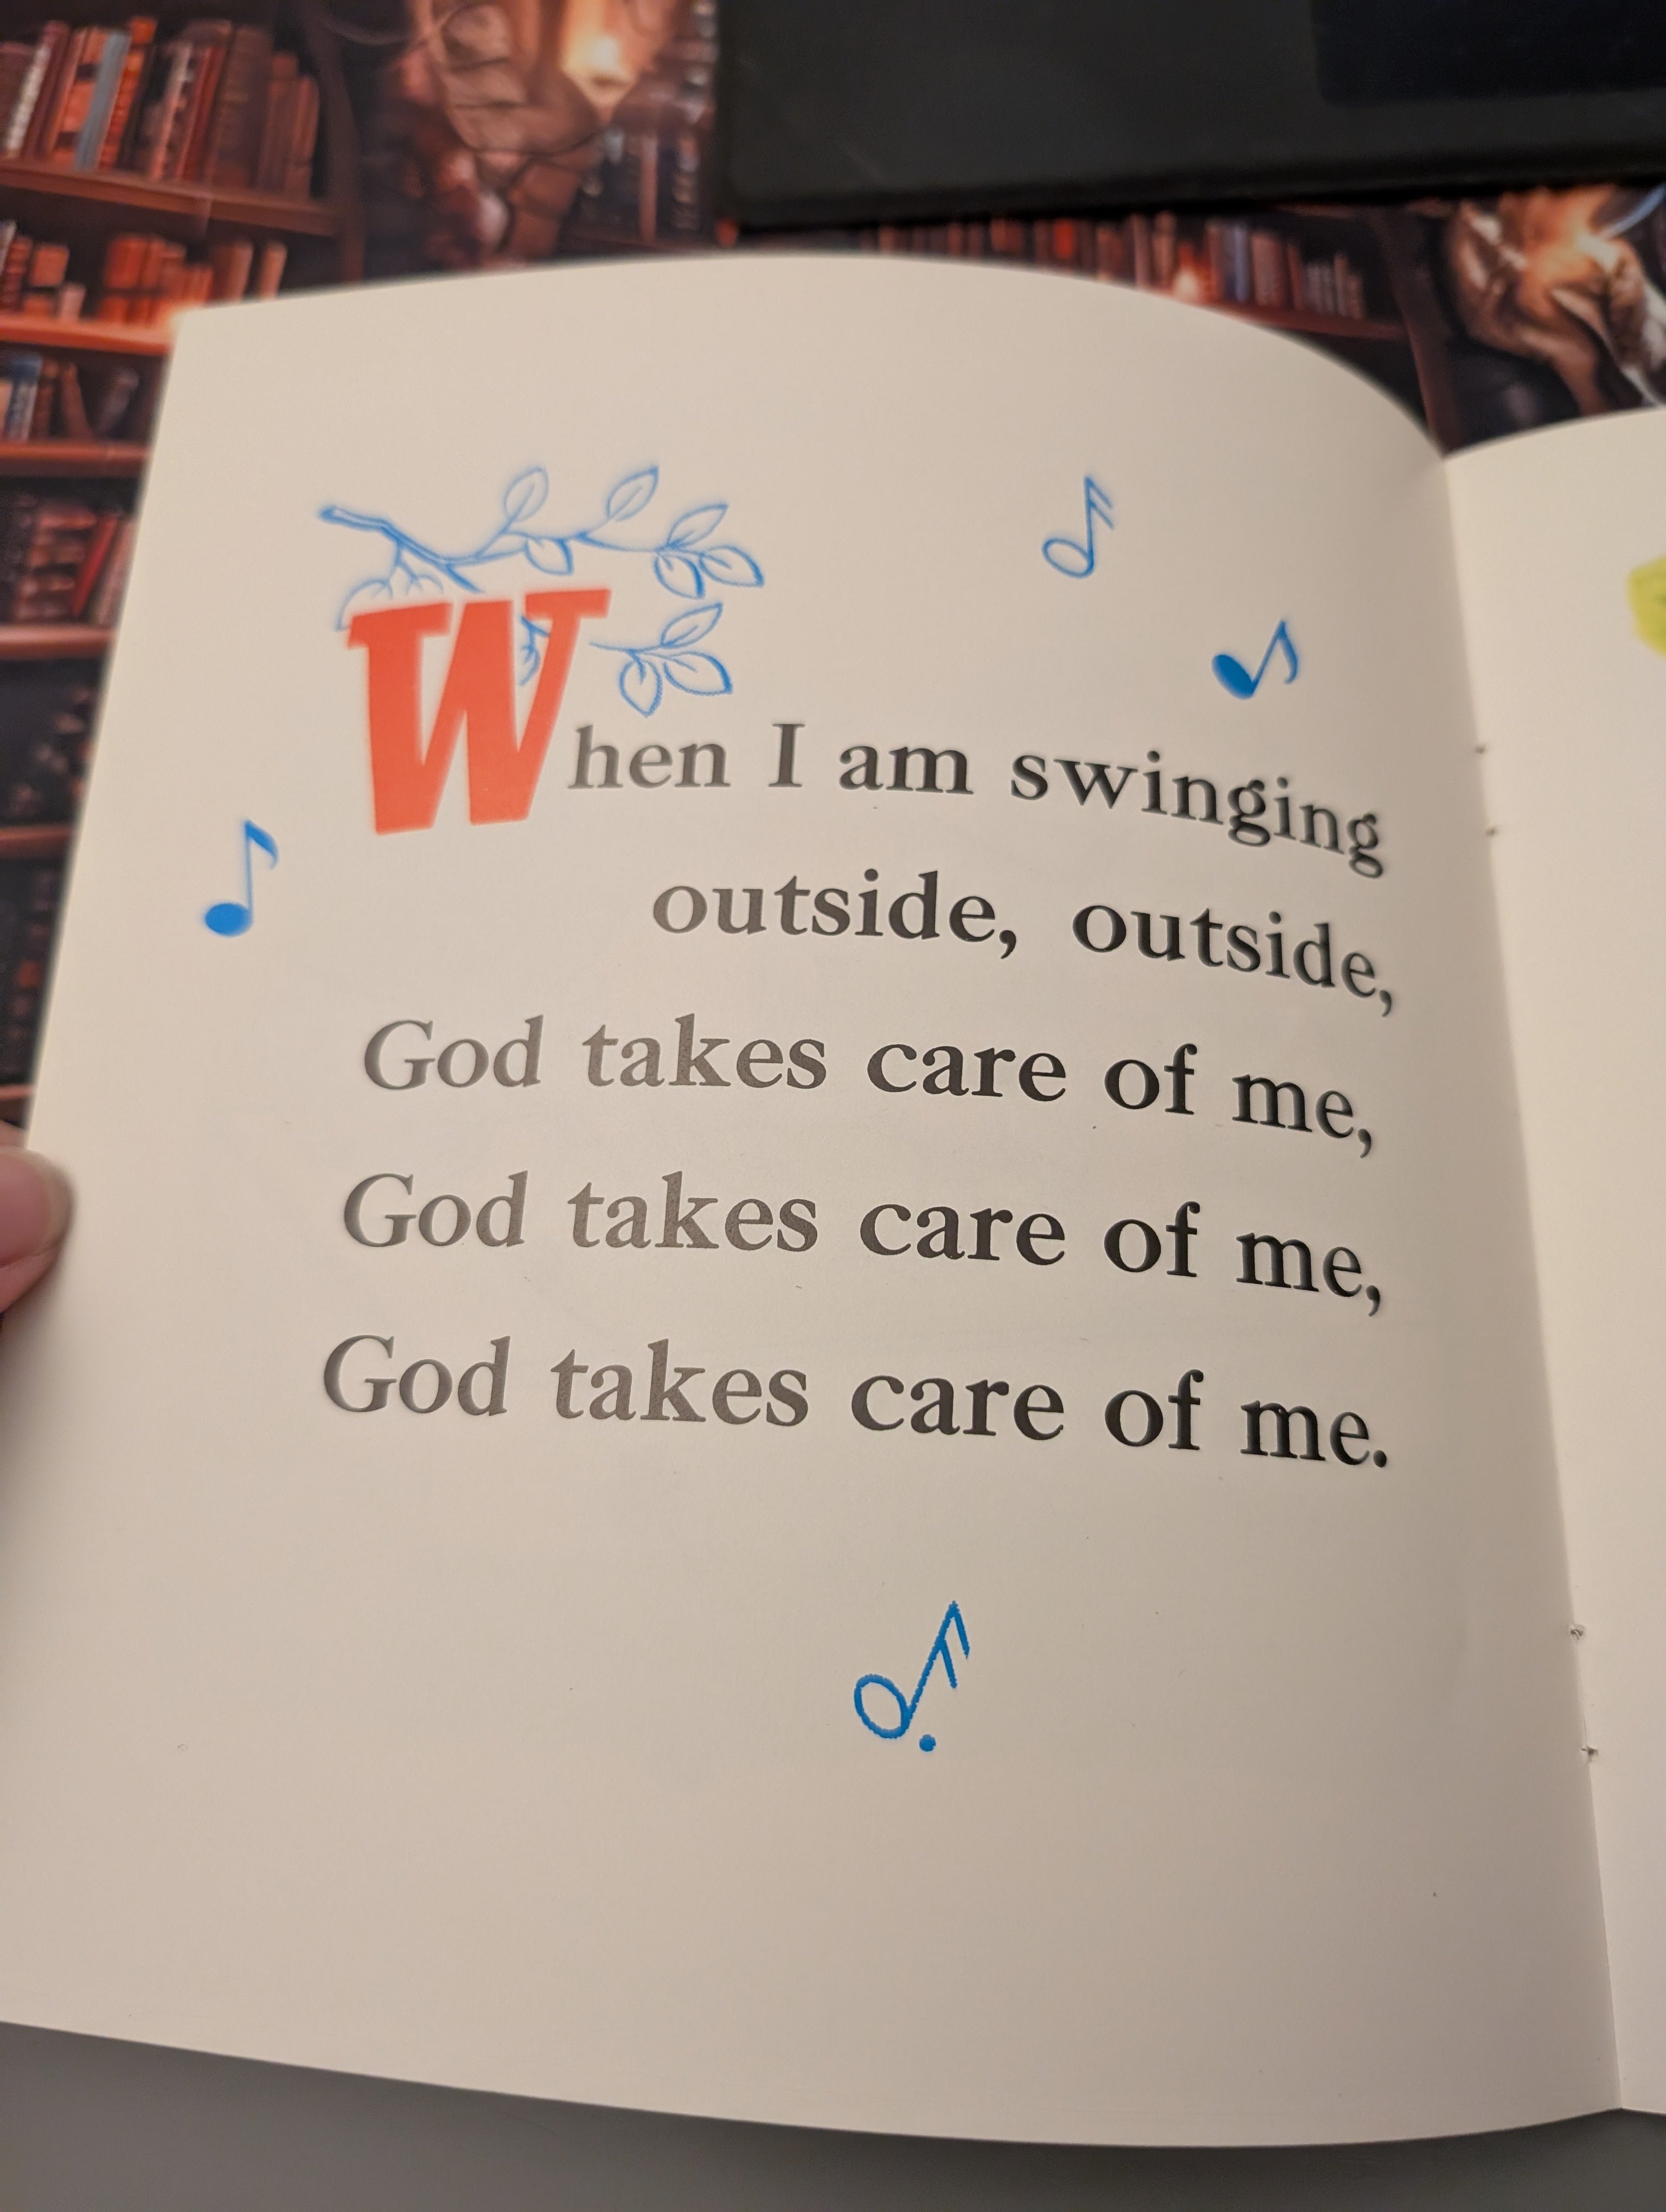 When I am swinging
outside, outside,
God takes care of me,
God takes care of me,
God takes care of me.